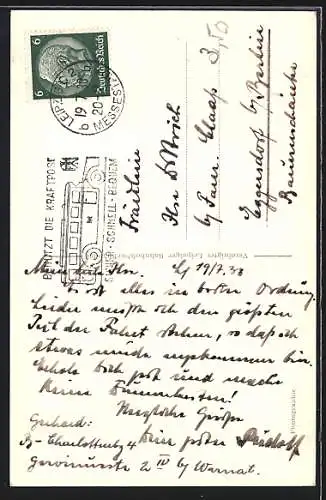 6 6
Deutsches Reich
LEIPZIG
19.7.
20-
b
MESSESTADT
BENUTZT DIE KRAFTPOST
SICHER-SCHNELL-BEQUEM
3,50
Fräulein
Ilse
b/ Fam. Claass
Eggersdorf b/ Berlin
Vereinigter Leipziger Bahnhofsbuchhandel
Photographie
Mein lieb Ilse. Lg 19/7.38
Es ist alles in bester Ordnung.
Leider mußte ich den größten
Teil der Fahrt stehen, so daß ich
etwas müde angekommen bin.
Erhole Dich gut und mache
keine Dummheiten!
Herzliche Grüße
Dein guter Rudolf
Gerhard:
B-Charlottenbg 4
2 IV b/